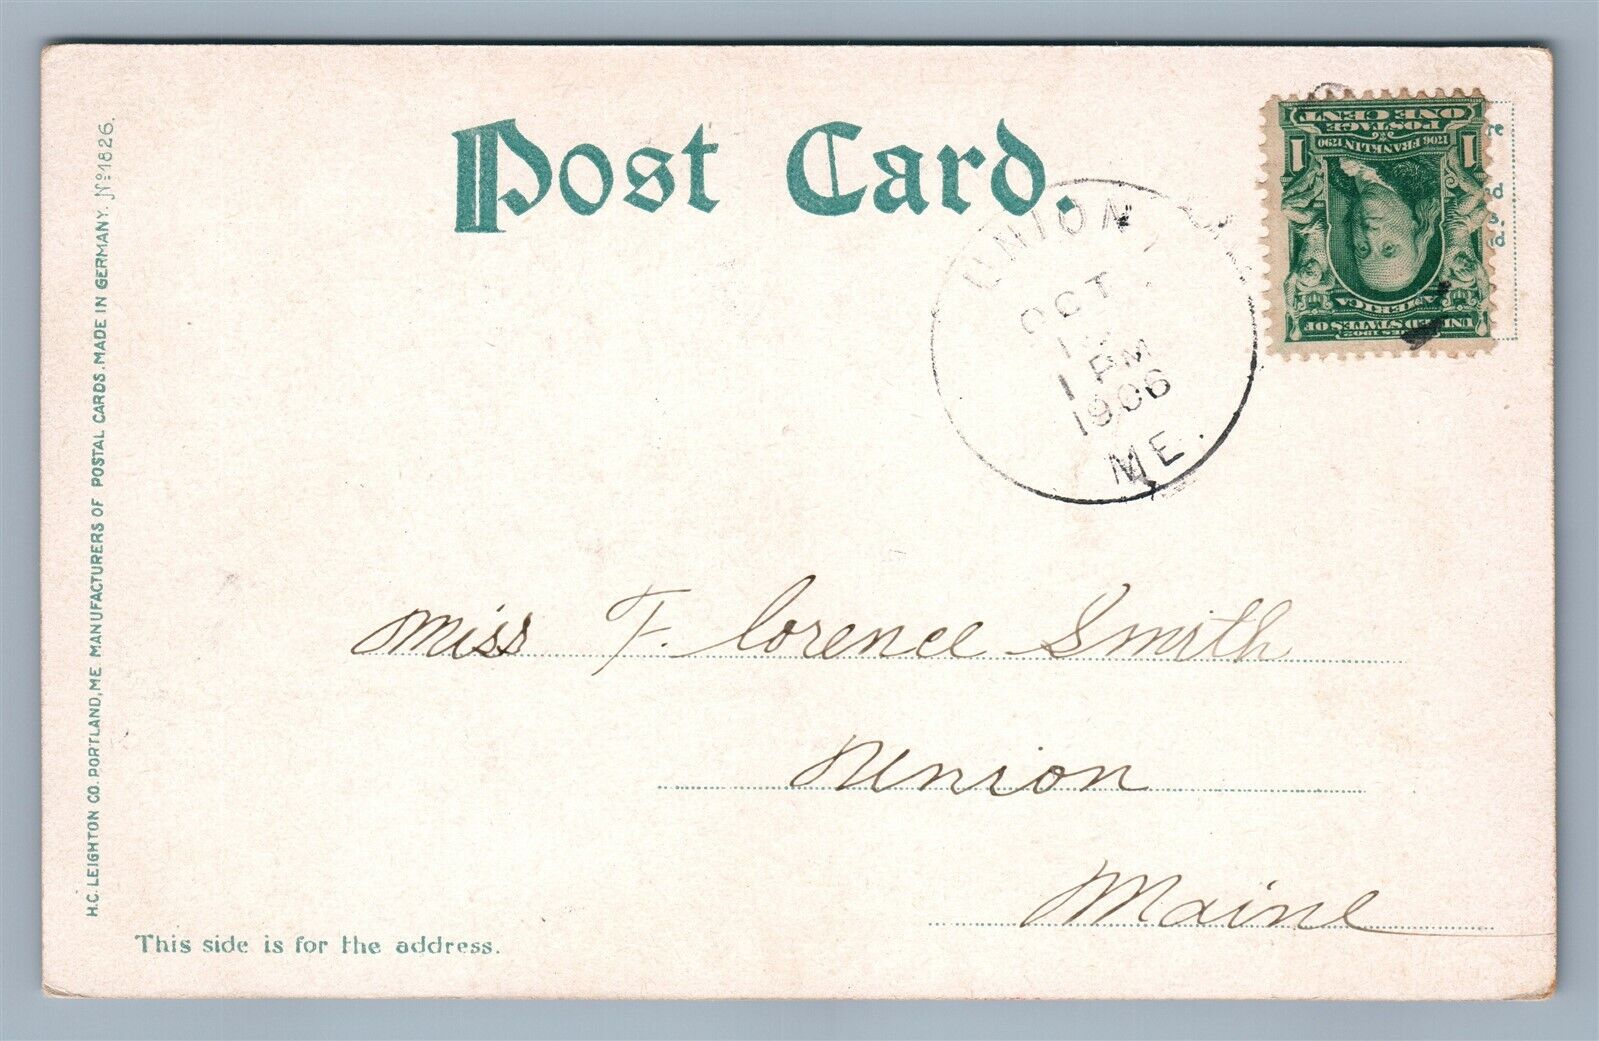 Post Card.
H.C. LEIGHTON CO. PORTLAND, ME MANUFACTURERS OF POSTAL CARDS. MADE IN GERMANY. No 1826.
1 ONE CENT 1
POSTAGE
1706 FRANKLIN 1790
SERIES 1902
UNITED STATES OF
AMERICA
UNION,
OCT
1 PM
1906
ME.
Miss F. lorence Smith
Union
Maine
This side is for the address.